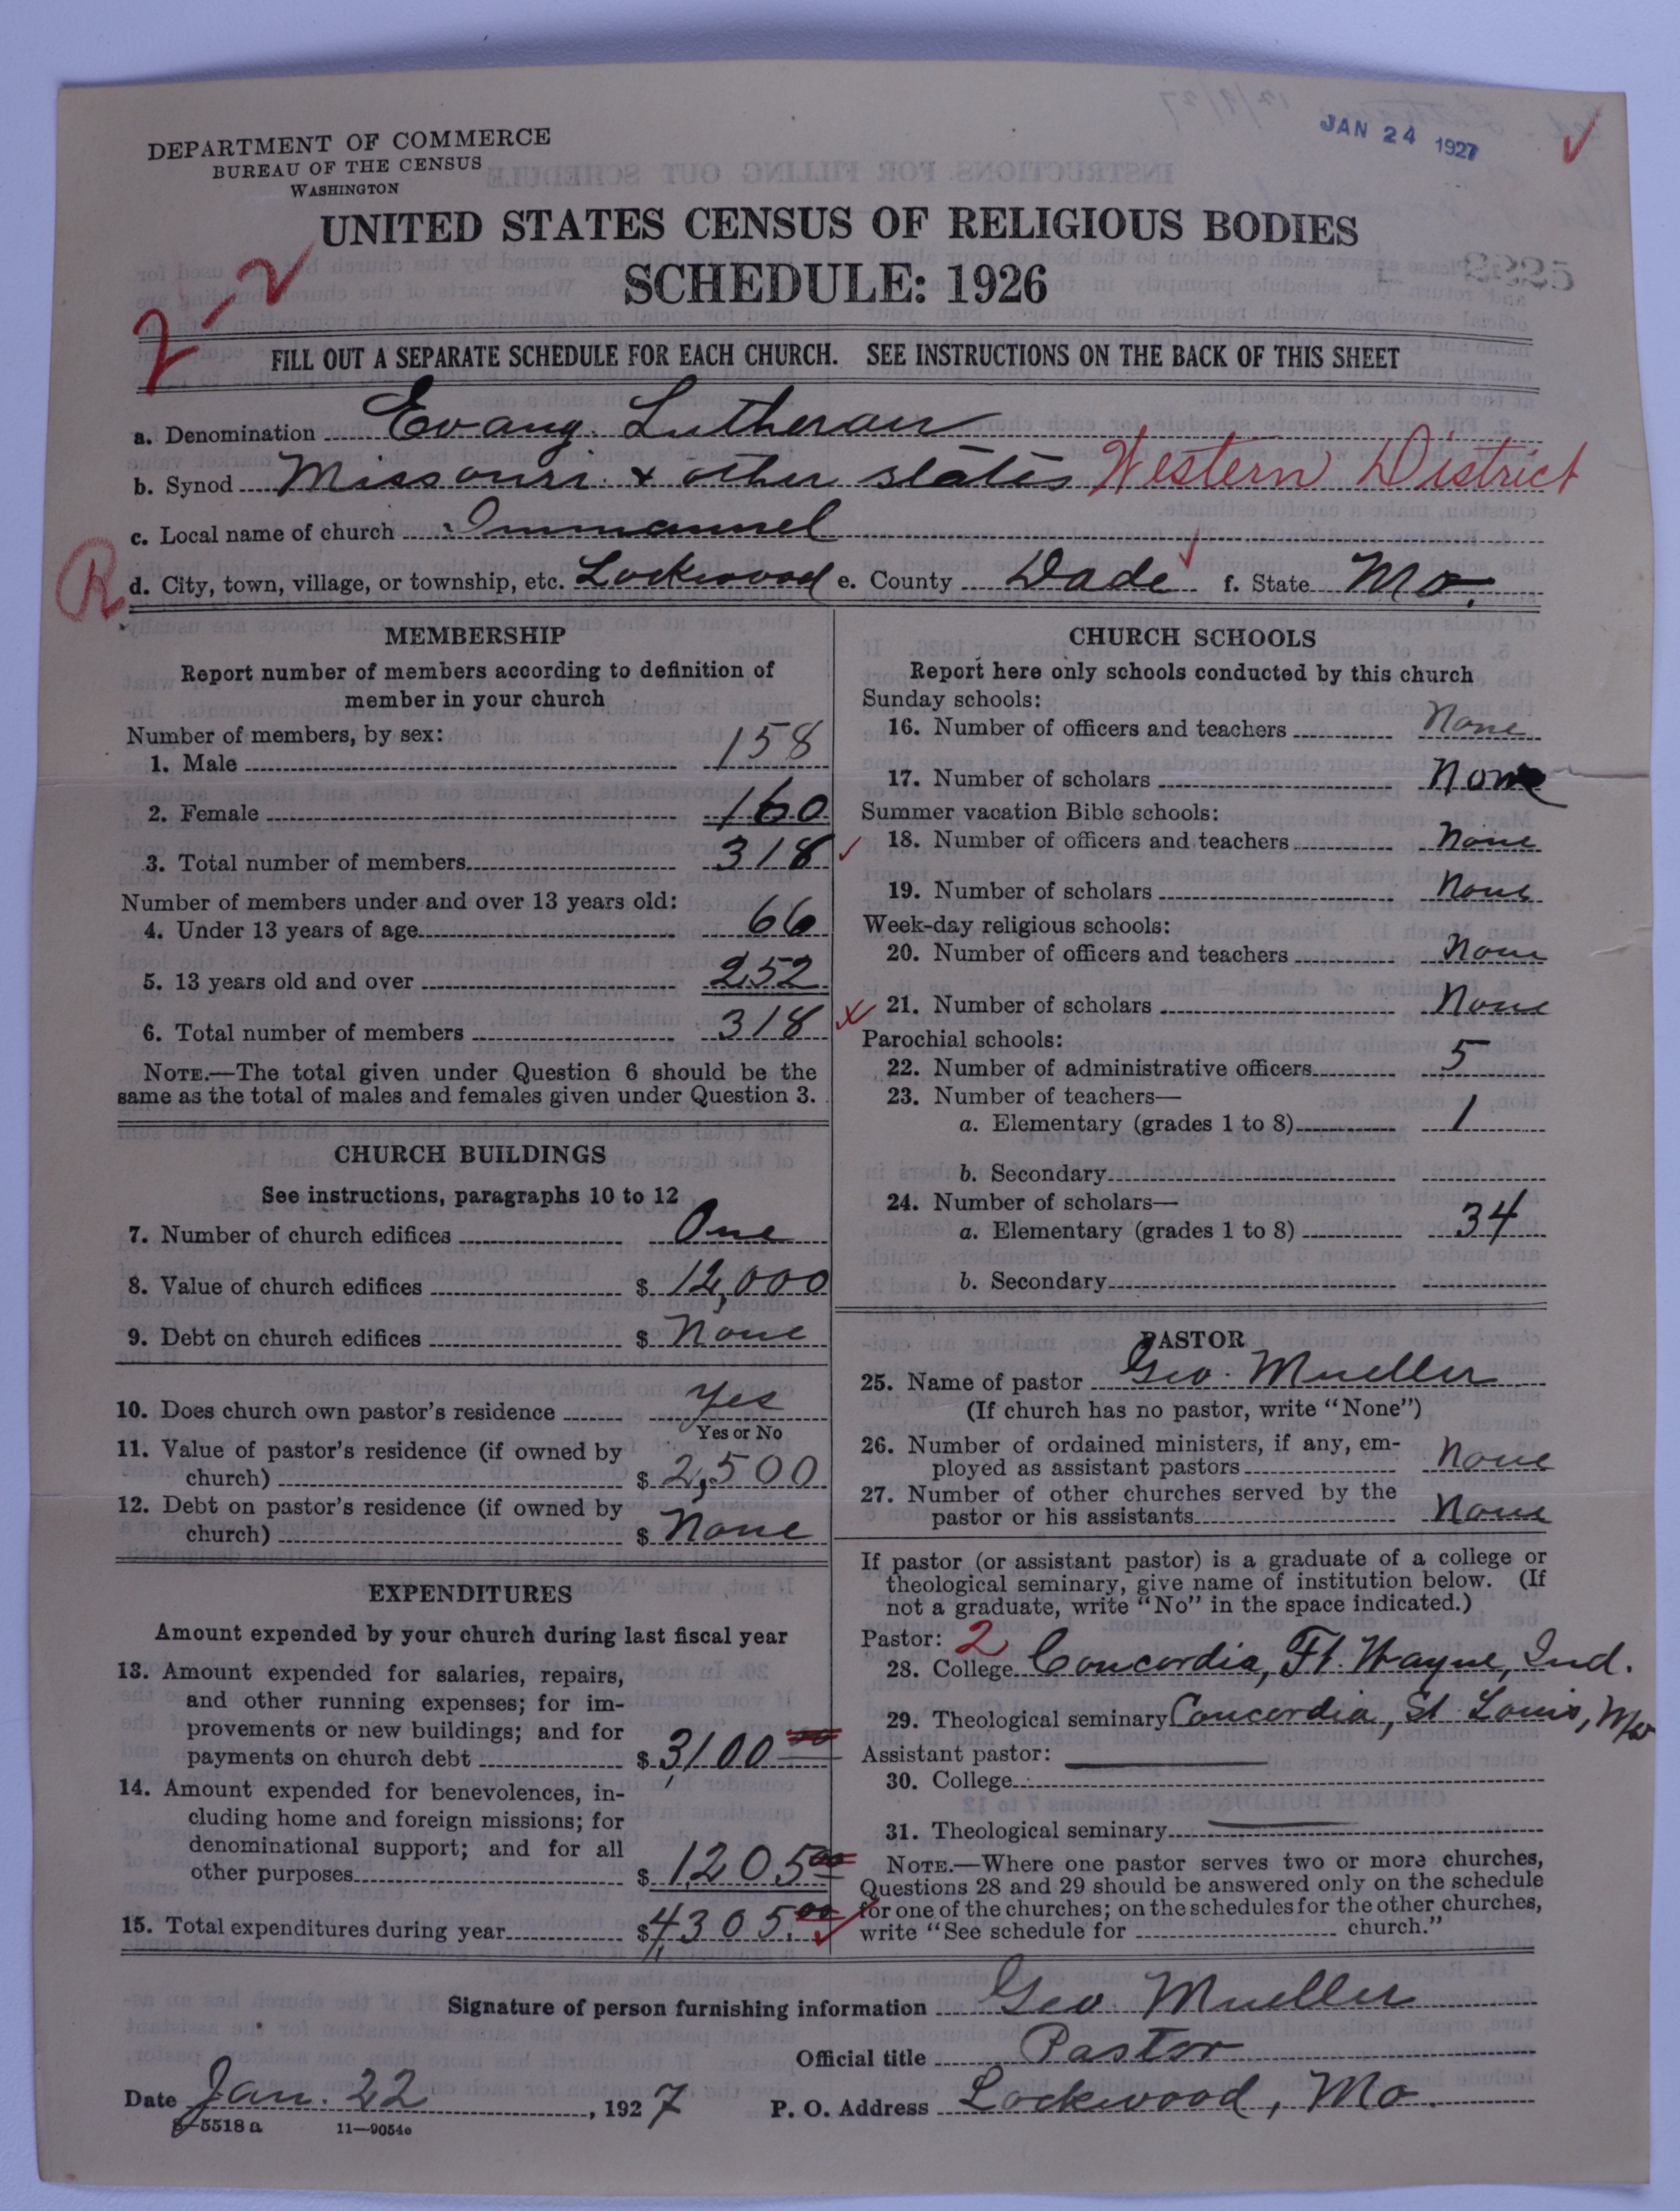 JAN 24 1927
DEPARTMENT OF COMMERCE
BUREAU OF THE CENSUS
WASHINGTON
UNITED STATES CENSUS OF RELIGIOUS BODIES
SCHEDULE: 1926
2-2
FILL OUT A SEPARATE SCHEDULE FOR EACH CHURCH. SEE INSTRUCTIONS ON THE BACK OF THIS SHEET
a. Denomination Evang. Lutheran
b. Synod Missouri & other states Western District
c. Local name of church Immanuel
R
d. City, town, village, or township, etc. Lockwood e. County Dade f. State Mo.
MEMBERSHIP
Report number of members according to definition of
member in your church
Number of members, by sex:
1. Male 158
2. Female 160
3. Total number of members 318
Number of members under and over 13 years old:
4. Under 13 years of age 66
5. 13 years old and over 252
6. Total number of members 318
NOTE.—The total given under Question 6 should be the
same as the total of males and females given under Question 3.
CHURCH BUILDINGS
See instructions, paragraphs 10 to 12
7. Number of church edifices One
8. Value of church edifices $ 12,000
9. Debt on church edifices $ None
10. Does church own pastor's residence Yes
Yes or No
11. Value of pastor's residence (if owned by
church) $ 2,500
12. Debt on pastor's residence (if owned by
church) $ None
EXPENDITURES
Amount expended by your church during last fiscal year
13. Amount expended for salaries, repairs,
and other running expenses; for im-
provements or new buildings; and for
payments on church debt $ 3,100 00
14. Amount expended for benevolences, in-
cluding home and foreign missions; for
denominational support; and for all
other purposes $ 1,205 00
15. Total expenditures during year $ 4,305.00
CHURCH SCHOOLS
Report here only schools conducted by this church
Sunday schools:
16. Number of officers and teachers None
17. Number of scholars None
Summer vacation Bible schools:
18. Number of officers and teachers None
19. Number of scholars None
Week-day religious schools:
20. Number of officers and teachers None
21. Number of scholars None
Parochial schools:
22. Number of administrative officers 5
23. Number of teachers—
a. Elementary (grades 1 to 8) 1
b. Secondary
24. Number of scholars—
a. Elementary (grades 1 to 8) 34
b. Secondary
PASTOR
25. Name of pastor Geo. Mueller
(If church has no pastor, write "None")
26. Number of ordained ministers, if any, em-
ployed as assistant pastors None
27. Number of other churches served by the
pastor or his assistants None
If pastor (or assistant pastor) is a graduate of a college or
theological seminary, give name of institution below. (If
not a graduate, write "No" in the space indicated.)
Pastor: 2
28. College Concordia, Ft. Wayne, Ind.
29. Theological seminary Concordia, St Louis, Mo
Assistant pastor:
30. College
31. Theological seminary
NOTE.—Where one pastor serves two or more churches,
Questions 28 and 29 should be answered only on the schedule
for one of the churches; on the schedules for the other churches,
write "See schedule for church."
Signature of person furnishing information Geo. Mueller
Official title Pastor
Date Jan. 22, 1927 P. O. Address Lockwood, Mo.
8-5518a 11-9054c